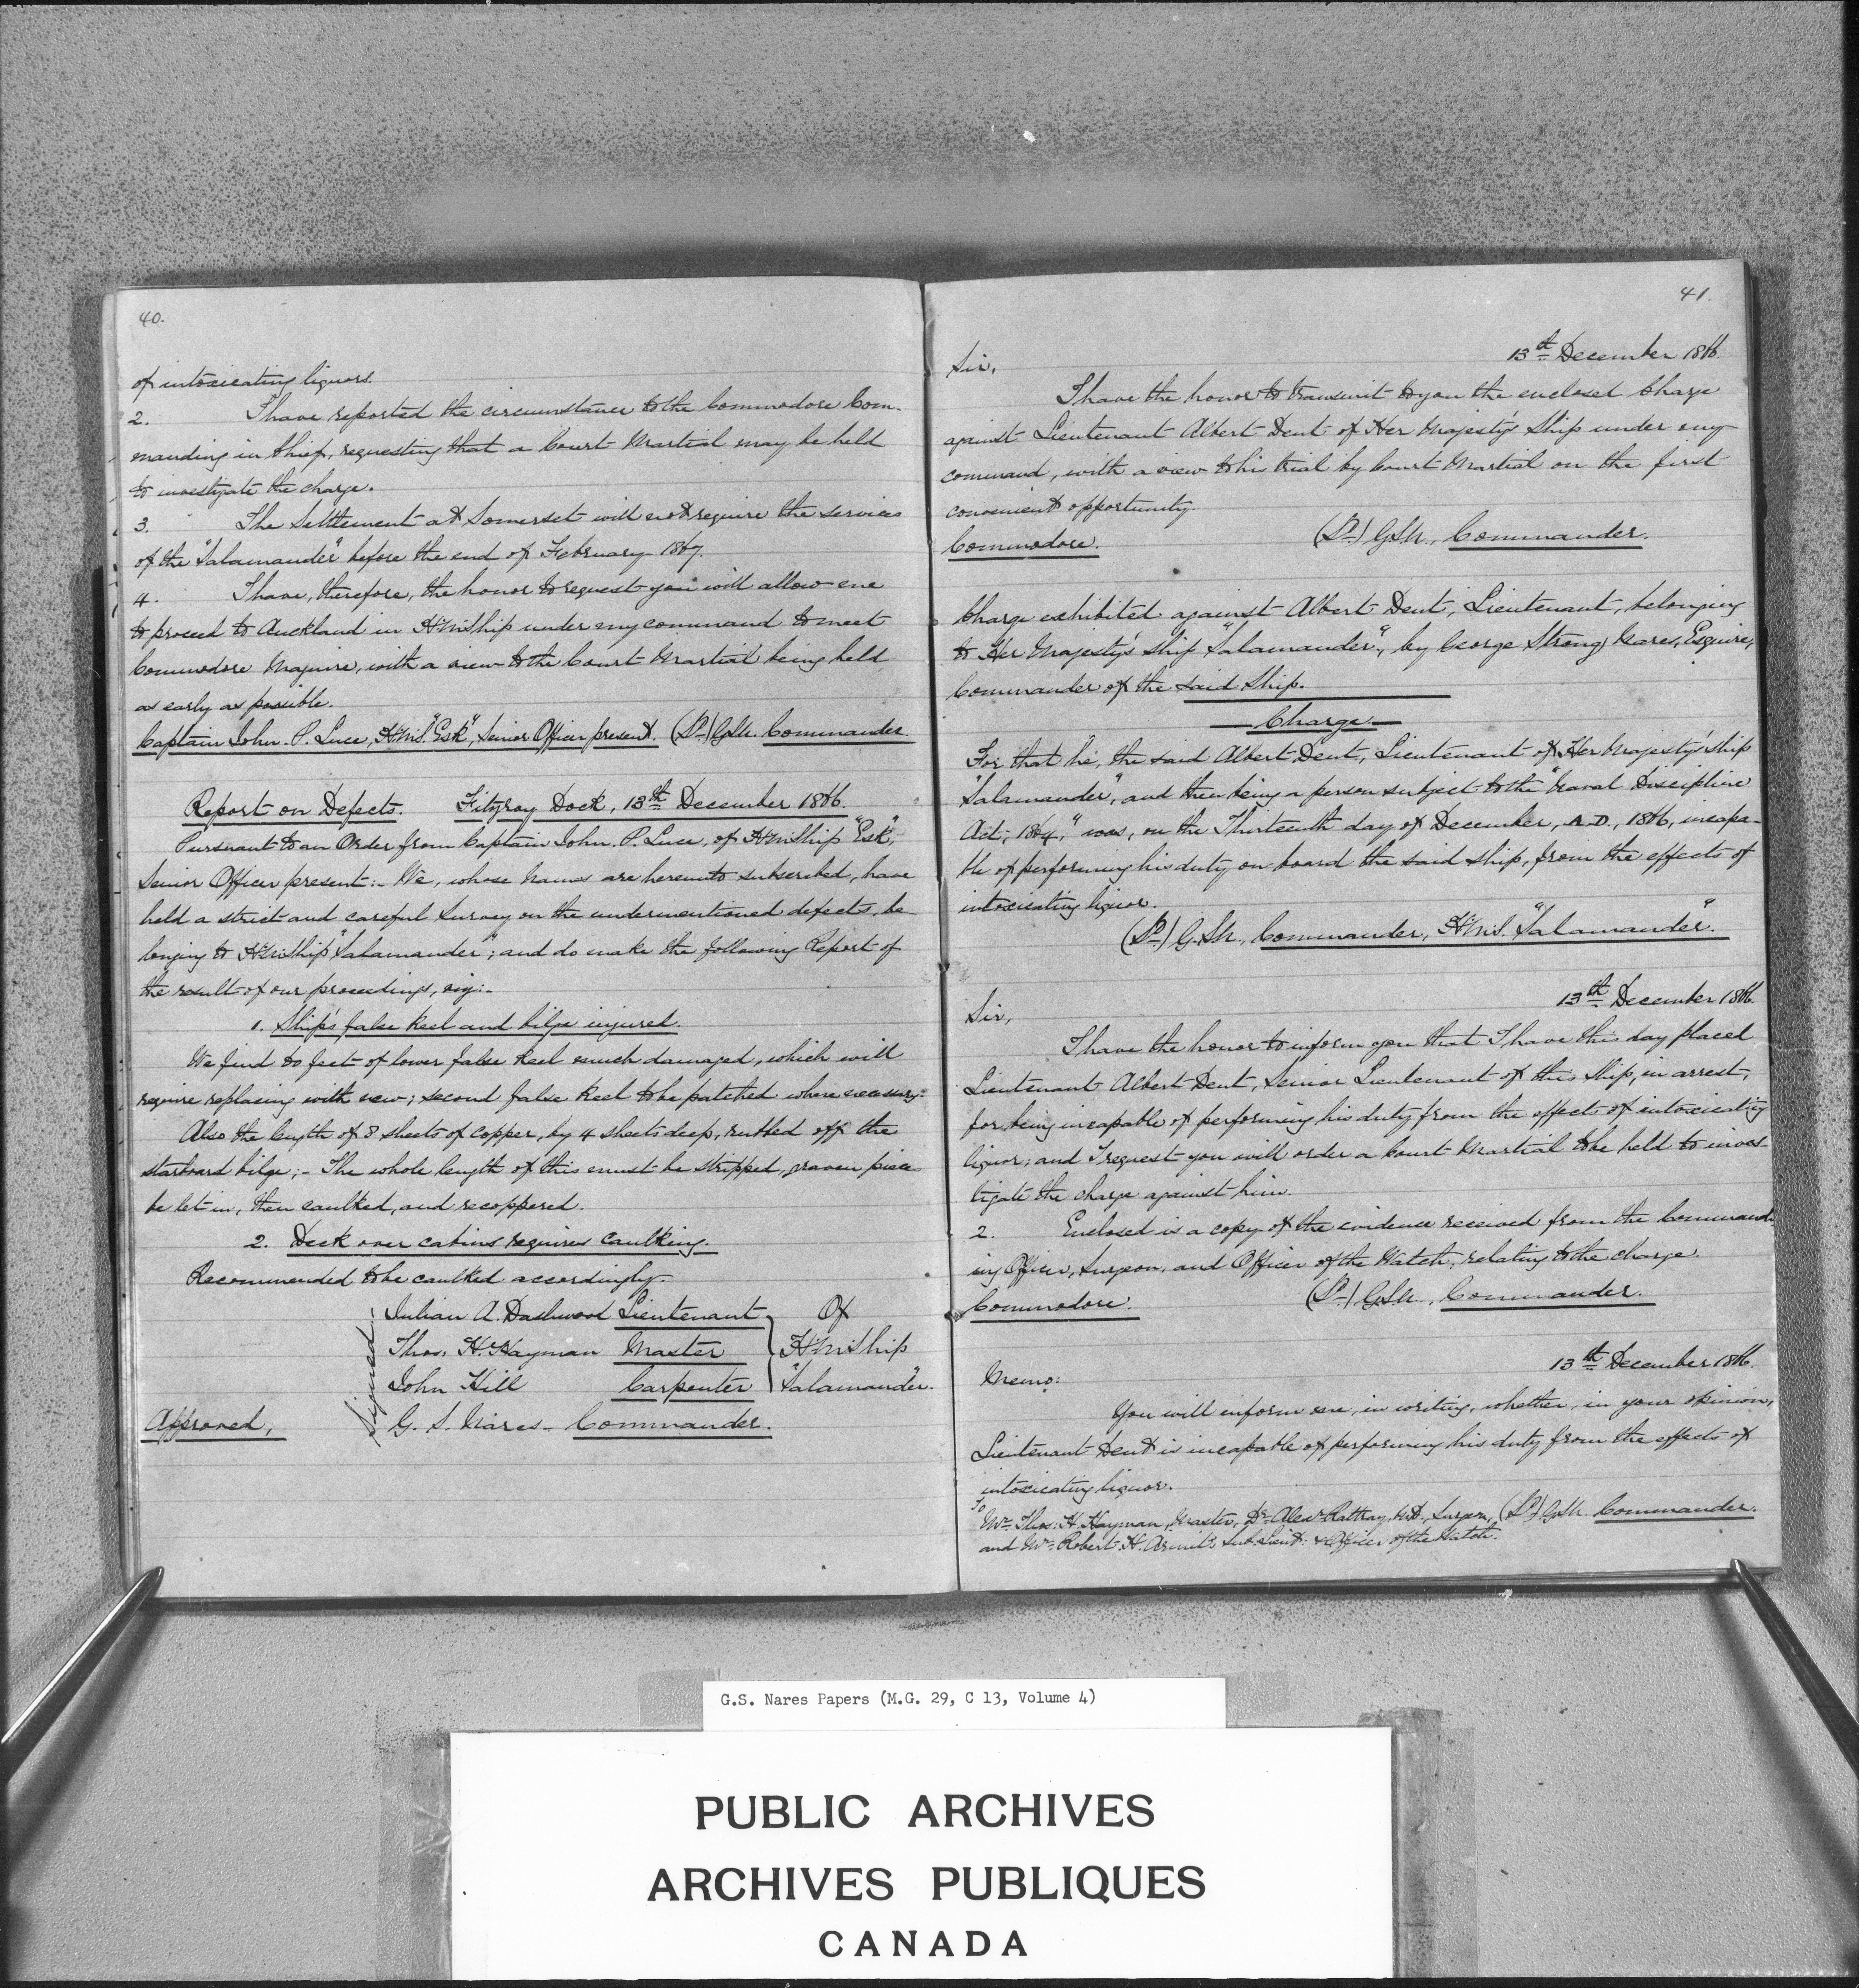 40.
of intoxicating liquors.
2. I have reported the circumstance to the Commodore Com-
manding in Chief, requesting that a Court Martial may be held
to investigate the charge.
3. The Settlement at Somerset will not require the services
of the "Salamander" before the end of February 1867.
4. I have, therefore, the honor to request you will allow me
to proceed to Auckland in H.M. Ship under my command to meet
Commodore Maguire, with a view to the Court Martial being held
as early as possible.
Captain John. P. Luce, H.M.S. "Esk", Senior Officer present. (Sd.) G.S.N. Commander
Report on Defects. Fitzroy Dock, 13th December 1866.
Pursuant to an Order from Captain John. P. Luce, of H.M. Ship "Esk",
Senior Officer present:- We, whose names are hereunto subscribed, have
held a strict and careful Survey on the undermentioned defects, be-
longing to H.M. Ship "Salamander"; and do make the following Report of
the result of our proceedings, viz:-
1. Ship's false keel and bilge injured.
We find 20 feet of lower false keel much damaged, which will
require replacing with new; second false keel to be patched where necessary.
Also the length of 8 sheets of copper, by 4 sheets deep, rubbed off the
starboard bilge;- The whole length of this must be stripped, graven pieces
be let in, then caulked, and recoppered.
2. Deck over cabins requires Caulking.
Recommended to be caulked accordingly.
Signed:
Julian A. Dashwood Lieutenant Of
Thos. H. Hayman Master H.M. Ship
John Hill Carpenter "Salamander".
Approved, G. S. Nares - Commander.
41.
13th December 1866.
Sir,
I have the honor to transmit to you the enclosed Charge
against Lieutenant Albert Dent of Her Majesty's Ship under my
command, with a view to his trial by Court Martial on the first
convenient opportunity.
Commodore. (Sd.) G.S.N., Commander.
Charge exhibited against Albert Dent, Lieutenant, belonging
to Her Majesty's Ship "Salamander", by George Strong Nares, Esquire,
Commander of the said Ship.
Charge
For that he, the said Albert Dent, Lieutenant of Her Majesty's Ship
"Salamander", and then being a person subject to the "Naval Discipline
Act, 1864," was, on the Thirteenth day of December, A.D., 1866, incapa-
ble of performing his duty on board the said Ship, from the effects of
intoxicating liquor.
(Sd.) G.S.N., Commander, H.M.S. "Salamander".
13th December 1866.
Sir,
I have the honor to inform you that I have this day placed
Lieutenant Albert Dent, Senior Lieutenant of this Ship, in arrest,
for being incapable of performing his duty from the effects of intoxicating
liquor; and I request you will order a Court Martial to be held to inves-
tigate the charge against him.
2. Enclosed is a copy of the evidence received from the Command-
ing Officer, Surgeon, and Officer of the Watch, relating to the charge.
Commodore. (Sd.) G.S.N., Commander.
13th December 1866.
Memo:
You will inform me, in writing, whether, in your opinion,
Lieutenant Dent is incapable of performing his duty from the effects of
intoxicating liquor.
To
Mr. Thos. H. Hayman, Master, Dr. Alexr. Rattray, M.D., Surgeon, (Sd.) G.S.N. Commander.
and Mr. Robert. H. Armit, Sub. Lieut. & Officer of the Watch.
G.S. Nares Papers (M.G. 29, C 13, Volume 4)
PUBLIC ARCHIVES
ARCHIVES PUBLIQUES
CANADA